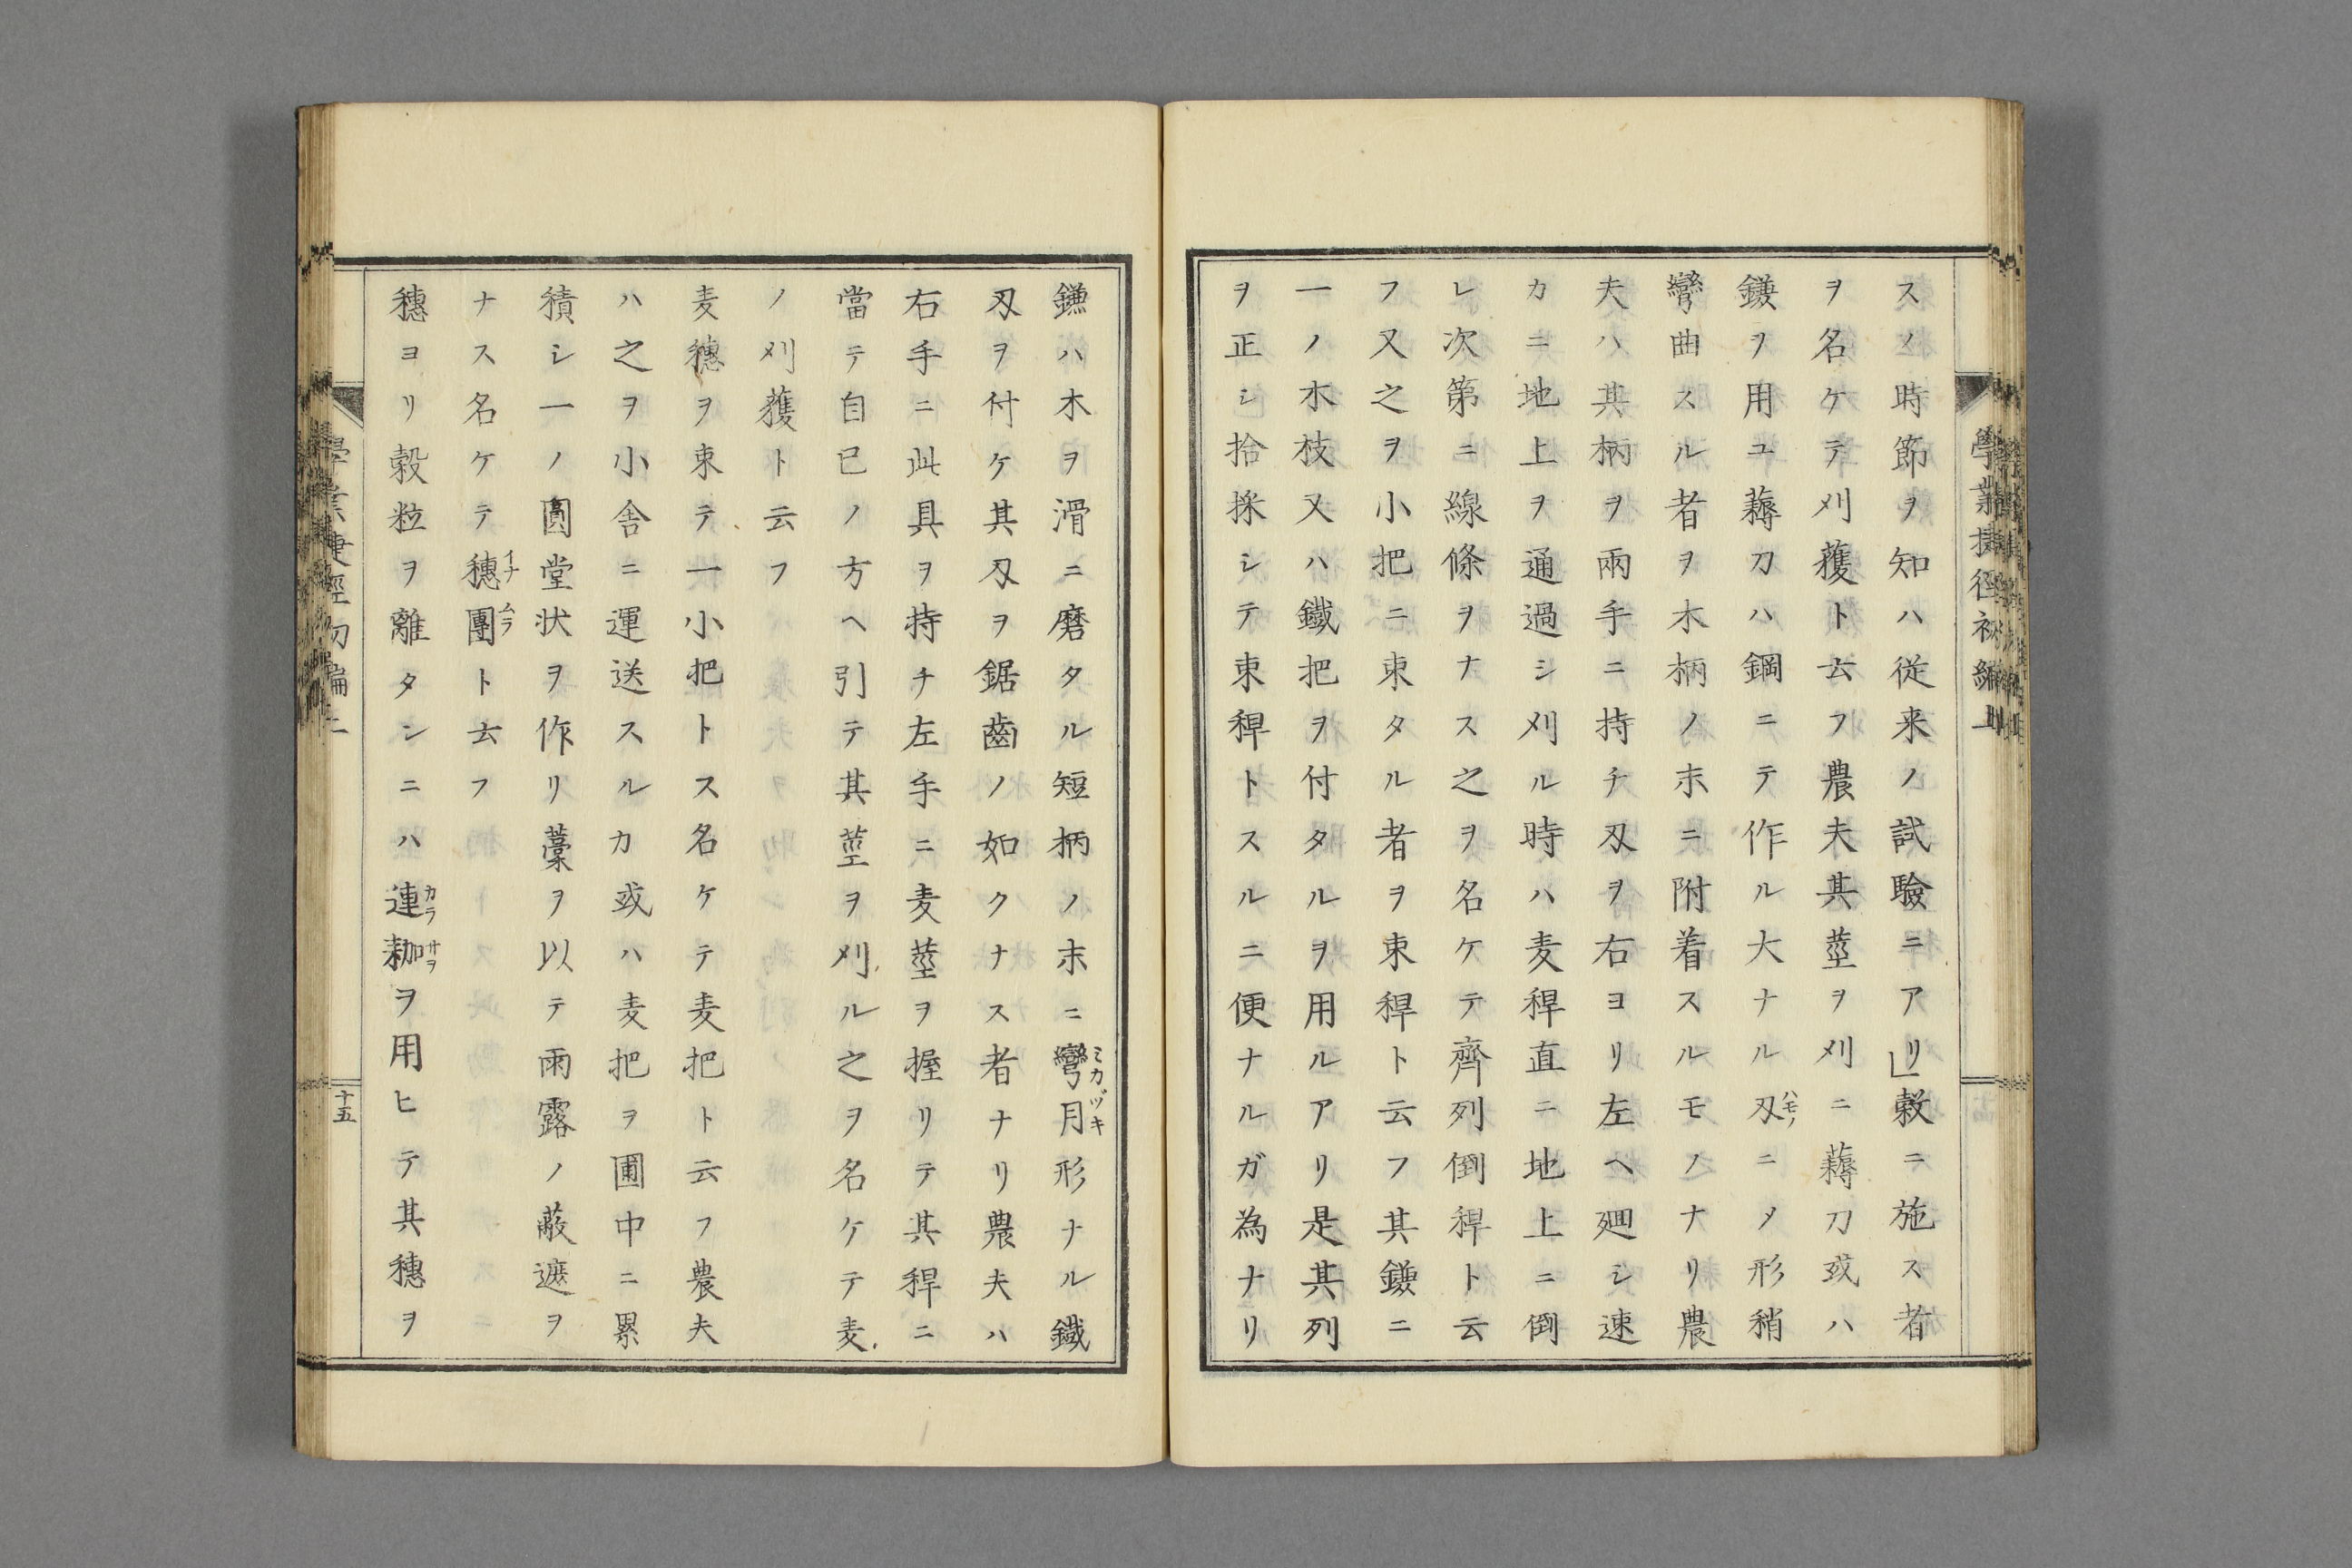 學業捷徑初編上
スノ時節ヲ知ハ従来ノ試驗ニアリ」穀ニ施ス者
ヲ名ケテ刈蘒ト云フ農夫其莖ヲ刈ニ薅刀或ハ
鎌ヲ用ユ薅刀ハ鋼ニテ作ル大ナル刃ニメ形稍
彎曲スル者ヲ木柄ノ末ニ附着スルモノナリ農
夫ハ其柄ヲ兩手ニ持チ刃ヲ右ヨリ左ヘ廻シ速
カニ地上ヲ通過シ刈ル時ハ麦稈直ニ地上ニ倒
レ次第ニ線條ヲナス之ヲ名ケテ齊列倒稈ト云
フ又之ヲ小把ニ束タル者ヲ束稈ト云フ其鎌ニ
一ノ木枝又ハ鐵把ヲ付タルヲ用ルアリ是其列
ヲ正シ拾採シテ束稈トスルニ便ナルガ為ナリ
鎌ハ木ヲ滑ニ磨タル短柄ノ末ニ彎月形ナル鐵
刃ヲ付ケ其刃ヲ鋸齒ノ如クナス者ナリ農夫ハ
右手ニ此具ヲ持チ左手ニ麦莖ヲ握リテ其稈ニ
當テ自己ノ方ヘ引テ其莖ヲ刈ル之ヲ名ケテ麦
ノ刈蘒ト云フ
麦穗ヲ束テ一小把トス名ケテ麦把ト云フ農夫
ハ之ヲ小舍ニ運送スルカ或ハ麦把ヲ圃中ニ累
積シ一ノ圓堂状ヲ作リ藁ヲ以テ雨露ノ蔽遮ヲ
ナス名ケテ穗團ト云フ
穗ヨリ穀粒ヲ離タンニハ連耞ヲ用ヒテ其穗ヲ
十五